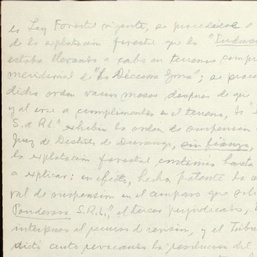 es Ley Forestal vigente, se procediese a
de la explotación forestal que la "Indus
estaba llevando a cabo en terrenos comp
meridional de "La Décima Zona"; se proce
dicha orden varios meses, después de que
y al irse a cumplimentar en el terreno, la "
S. de R.L." exhibe la orden de suspensión
Juez de Distrito de Durango, sin fianza,
la explotación forestal continúa hasta
a explicar: en efecto, hecha patente la a
ral de suspensión en el amparo que
Ponderosa S.R.L.", el tercer perjudicado,
interpuso el recurso de revisión, y el Trib
dictó auto revocando la resolución del